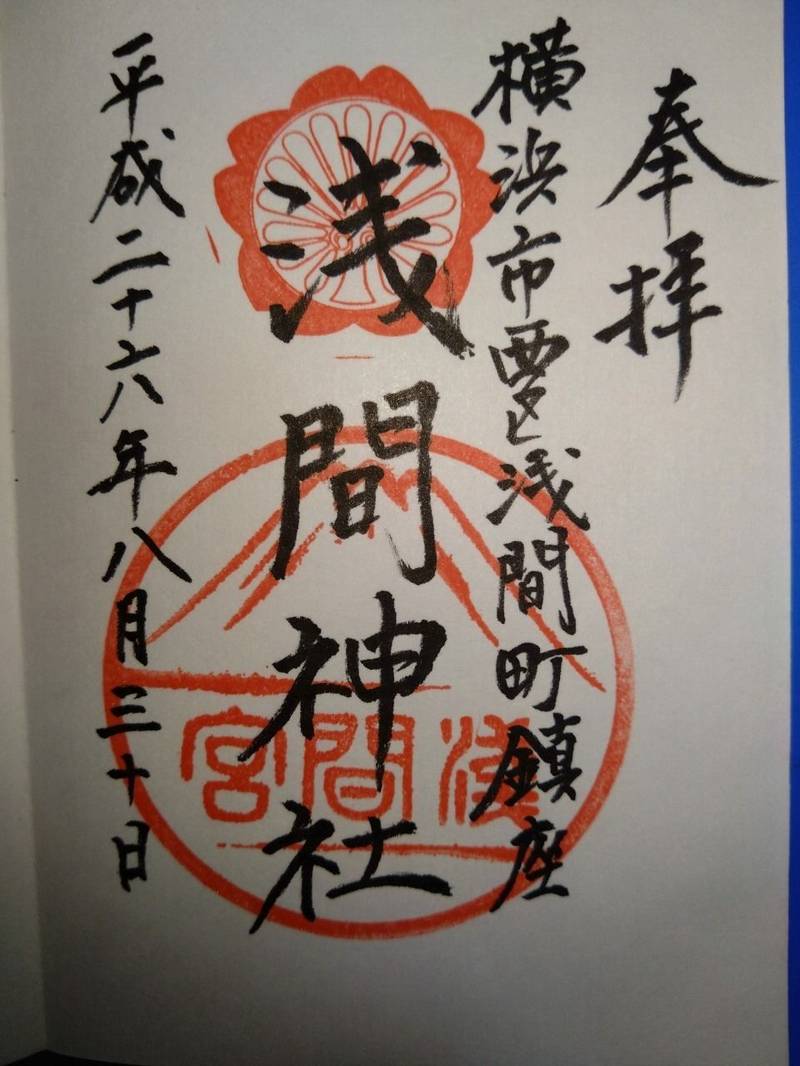 奉拝
横浜市西区浅間町鎮座
浅間神社
浅間宮
平成二十六年八月三十日